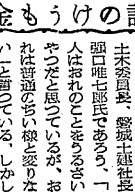 金もうけの
土木委員長、磐城土建社長
口唯七郎氏であろう、「
人はおれのことをうるさい
やつだと思っているが、お
れは普通のぢい様と変りな
い」と語っている。しかし